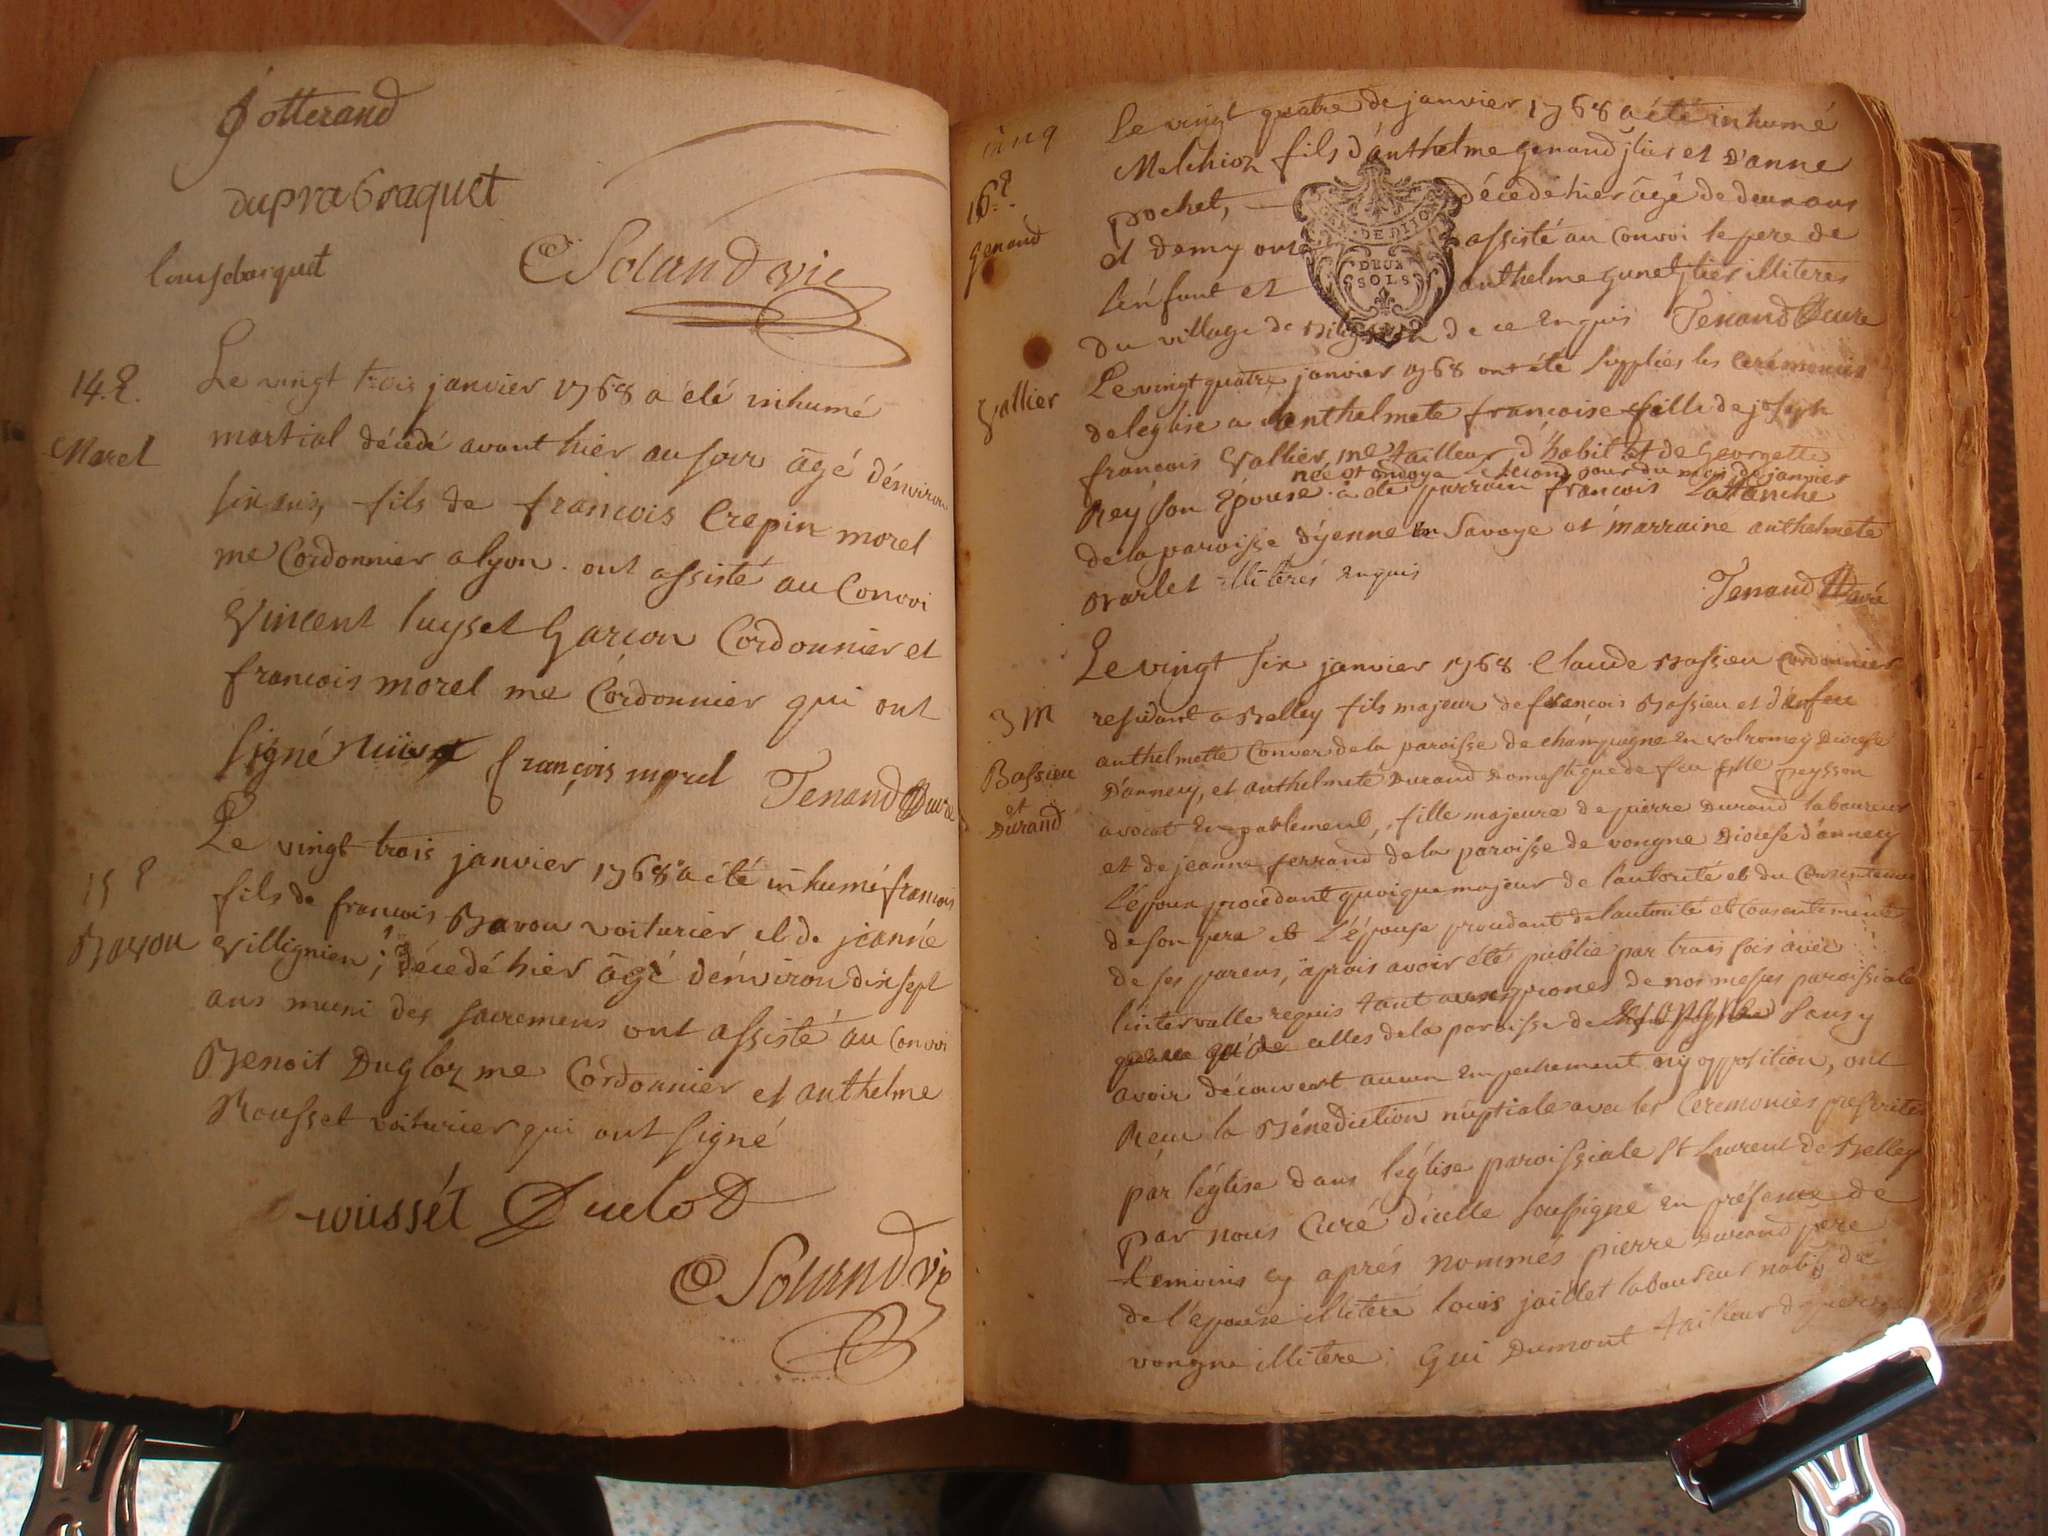 Jotterand
dupraz braquet
Solland vic
14.e
Morel
Le vingt trois janvier 1768 a été inhumé
martial décédé avant hier au soir âgé d'environ
six ans, fils de francois Crepin morel
me Cordonnier a lyon. ont assisté au Convoi
Vincent luyset Garcon Cordonnier et
francois morel me Cordonnier qui ont
signé françois morel Tenand Cure
15e
Bavou
Le vingt trois janvier 1768 a été inhumé francois
fils de francois Bavou voiturier et de jeanne
Villignien, décedé hier âgé d'environ dix sept
ans muni des sacremens ont assisté au Convoi
Benoit Dugloz me Cordonnier et anthelme
Rousset voiturier qui ont signé
rousset Duclos
Solland vic
16.e
Genand
Le vingt quatre de janvier 1768 a été inhumé
Melchior fils d'anthelme Genand et d'anne
pochet, décedé hier âgé de deux ans
et demy ont assisté au Convoi le pere de
l'enfant et anthelme illiteres
du village de de ce Enquis Tenand Cure
DEUX
SOLS
Vallier
Le vingt quatre janvier 1768 ont été supplées les Cerémonies
de leglise a anthelmete francoise fille de joseph
francois Vallier me tailleur d'habit et de Georgette
née et ondoyée second jour du mois de janvier
Rey son Epouse a été parrain francois
de la paroisse d'yenne en Savoye et marraine anthelmete
Varlet illiterés Enquis
Tenand Curé
3 M
Bassieu
et
Durand
Le vingt six janvier 1768 Claude Bassieu Cordonnier
residant a Belley fils majeur de francois Bassieu et d'enfeu
anthelmette Convers de la paroisse de champagne en Valromey Diocese
D'annecy, et anthelmete Durand Domestique de feu Peysson
avocat En parlement, fille majeure de pierre Durand laboureur
et de jeanne ferrand de la paroisse de vongne Diocese d'annecy
L'époux procedant quoique majeur de l'autorité et du Consentement
de son pere et L'épouse procedant de l'autorité et Consentement
de ses parens, après avoir été publié par trois fois avec
l'intervalle requis tant aux prones de nos messes paroissiale
qu'a celles de la paroisse de vongne Sans y
avoir découvert aucun Empechement ny opposition, ont
Reçu la Bénediction nuptiale avec les Ceremonies prescrites
par léglise dans léglise paroissiale St Laurent de Belley
par nous Curé d'icelle soussigné en présence de
temoins cy aprés nommés pierre Durand père
de l'épouse illiteré louis jaillet laboureur de
vongne illitere. Gui Dumont tailleur